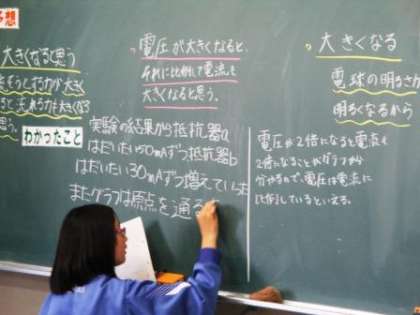 予想
大きくなると思う
電圧が大きくなると、
それに比例して電流も
大きくなると思う。
大きくなる
電球の明るさが
明るくなるから
思う。
わかったこと
実験の結果から抵抗器a
はだいたい50mAずつ抵抗器b
はだいたい30mAずつ増えていった
またグラフは原点を通る
電圧が2倍になると電流も
2倍になることがグラフから
分かるので、電圧は電流に
比例しているといえる。